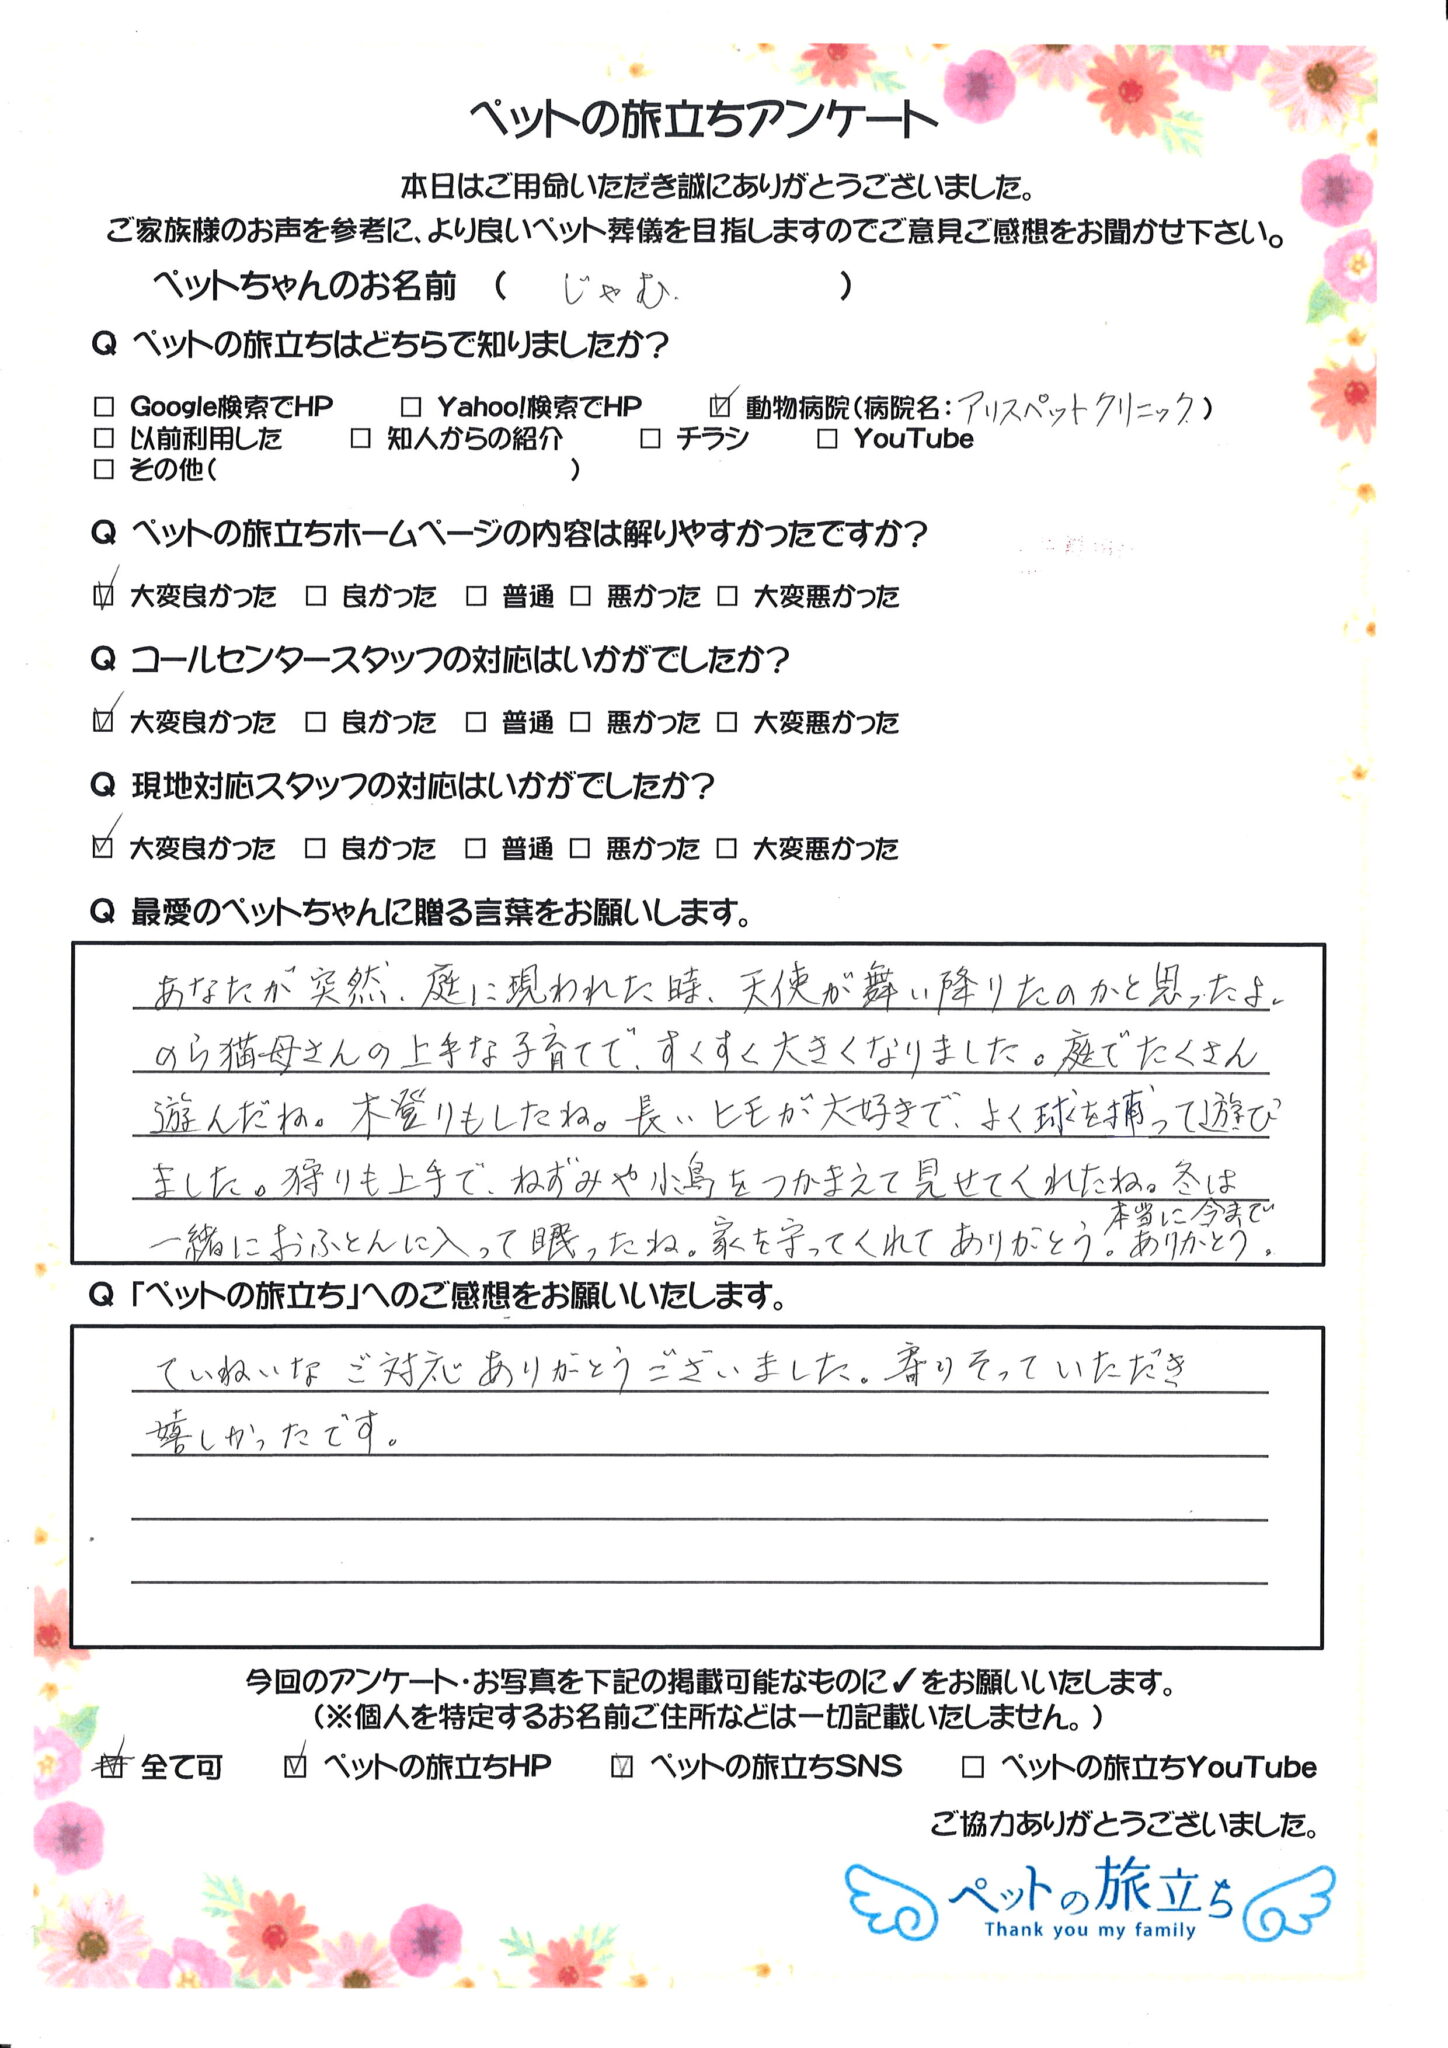 ペットの旅立ちアンケート
本日はご用命いただき誠にありがとうございました。
ご家族様のお声を参考に、より良いペット葬儀を目指しますのでご意見ご感想をお聞かせ下さい。
ペットちゃんのお名前 ( じゃむ. )
Q ペットの旅立ちはどちらで知りましたか?
□ Google検索でHP □ Yahoo!検索でHP ☑ 動物病院(病院名:アリスペットクリニック)
□ 以前利用した □ 知人からの紹介 □ チラシ □ YouTube
□ その他( )
Q ペットの旅立ちホームページの内容は解りやすかったですか?
☑ 大変良かった □ 良かった □ 普通 □ 悪かった □ 大変悪かった
Q コールセンタースタッフの対応はいかがでしたか?
☑ 大変良かった □ 良かった □ 普通 □ 悪かった □ 大変悪かった
Q 現地対応スタッフの対応はいかがでしたか?
☑ 大変良かった □ 良かった □ 普通 □ 悪かった □ 大変悪かった
Q 最愛のペットちゃんに贈る言葉をお願いします。
あなたが突然、庭に現われた時、天使が舞い降りたのかと思ったよ。
のら猫母さんの上手な子育てで、すくすく大きくなりました。庭でたくさん
遊んだね。木登りもしたね。長いヒモが大好きで、よく球を捕って遊び
ました。狩りも上手で、ねずみや小鳥をつかまえて見せてくれたね。冬は
一緒におふとんに入って眠ったね。家を守ってくれてありがとう。本当に今まで
ありがとう。
Q 「ペットの旅立ち」へのご感想をお願いいたします。
ていねいなご対応ありがとうございました。寄りそっていただき
嬉しかったです。
今回のアンケート・お写真を下記の掲載可能なものに✓をお願いいたします。
(※個人を特定するお名前ご住所などは一切記載いたしません。)
☑ 全て可 ☑ ペットの旅立ちHP ☑ ペットの旅立ちSNS □ ペットの旅立ちYouTube
ご協力ありがとうございました。
ペットの旅立ち
Thank you my family